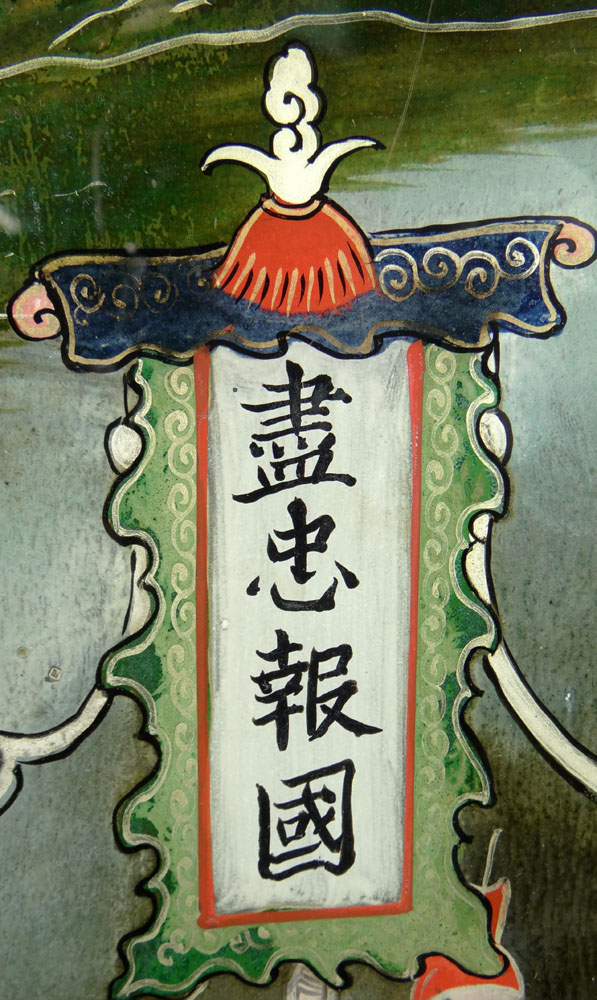 盡忠報國